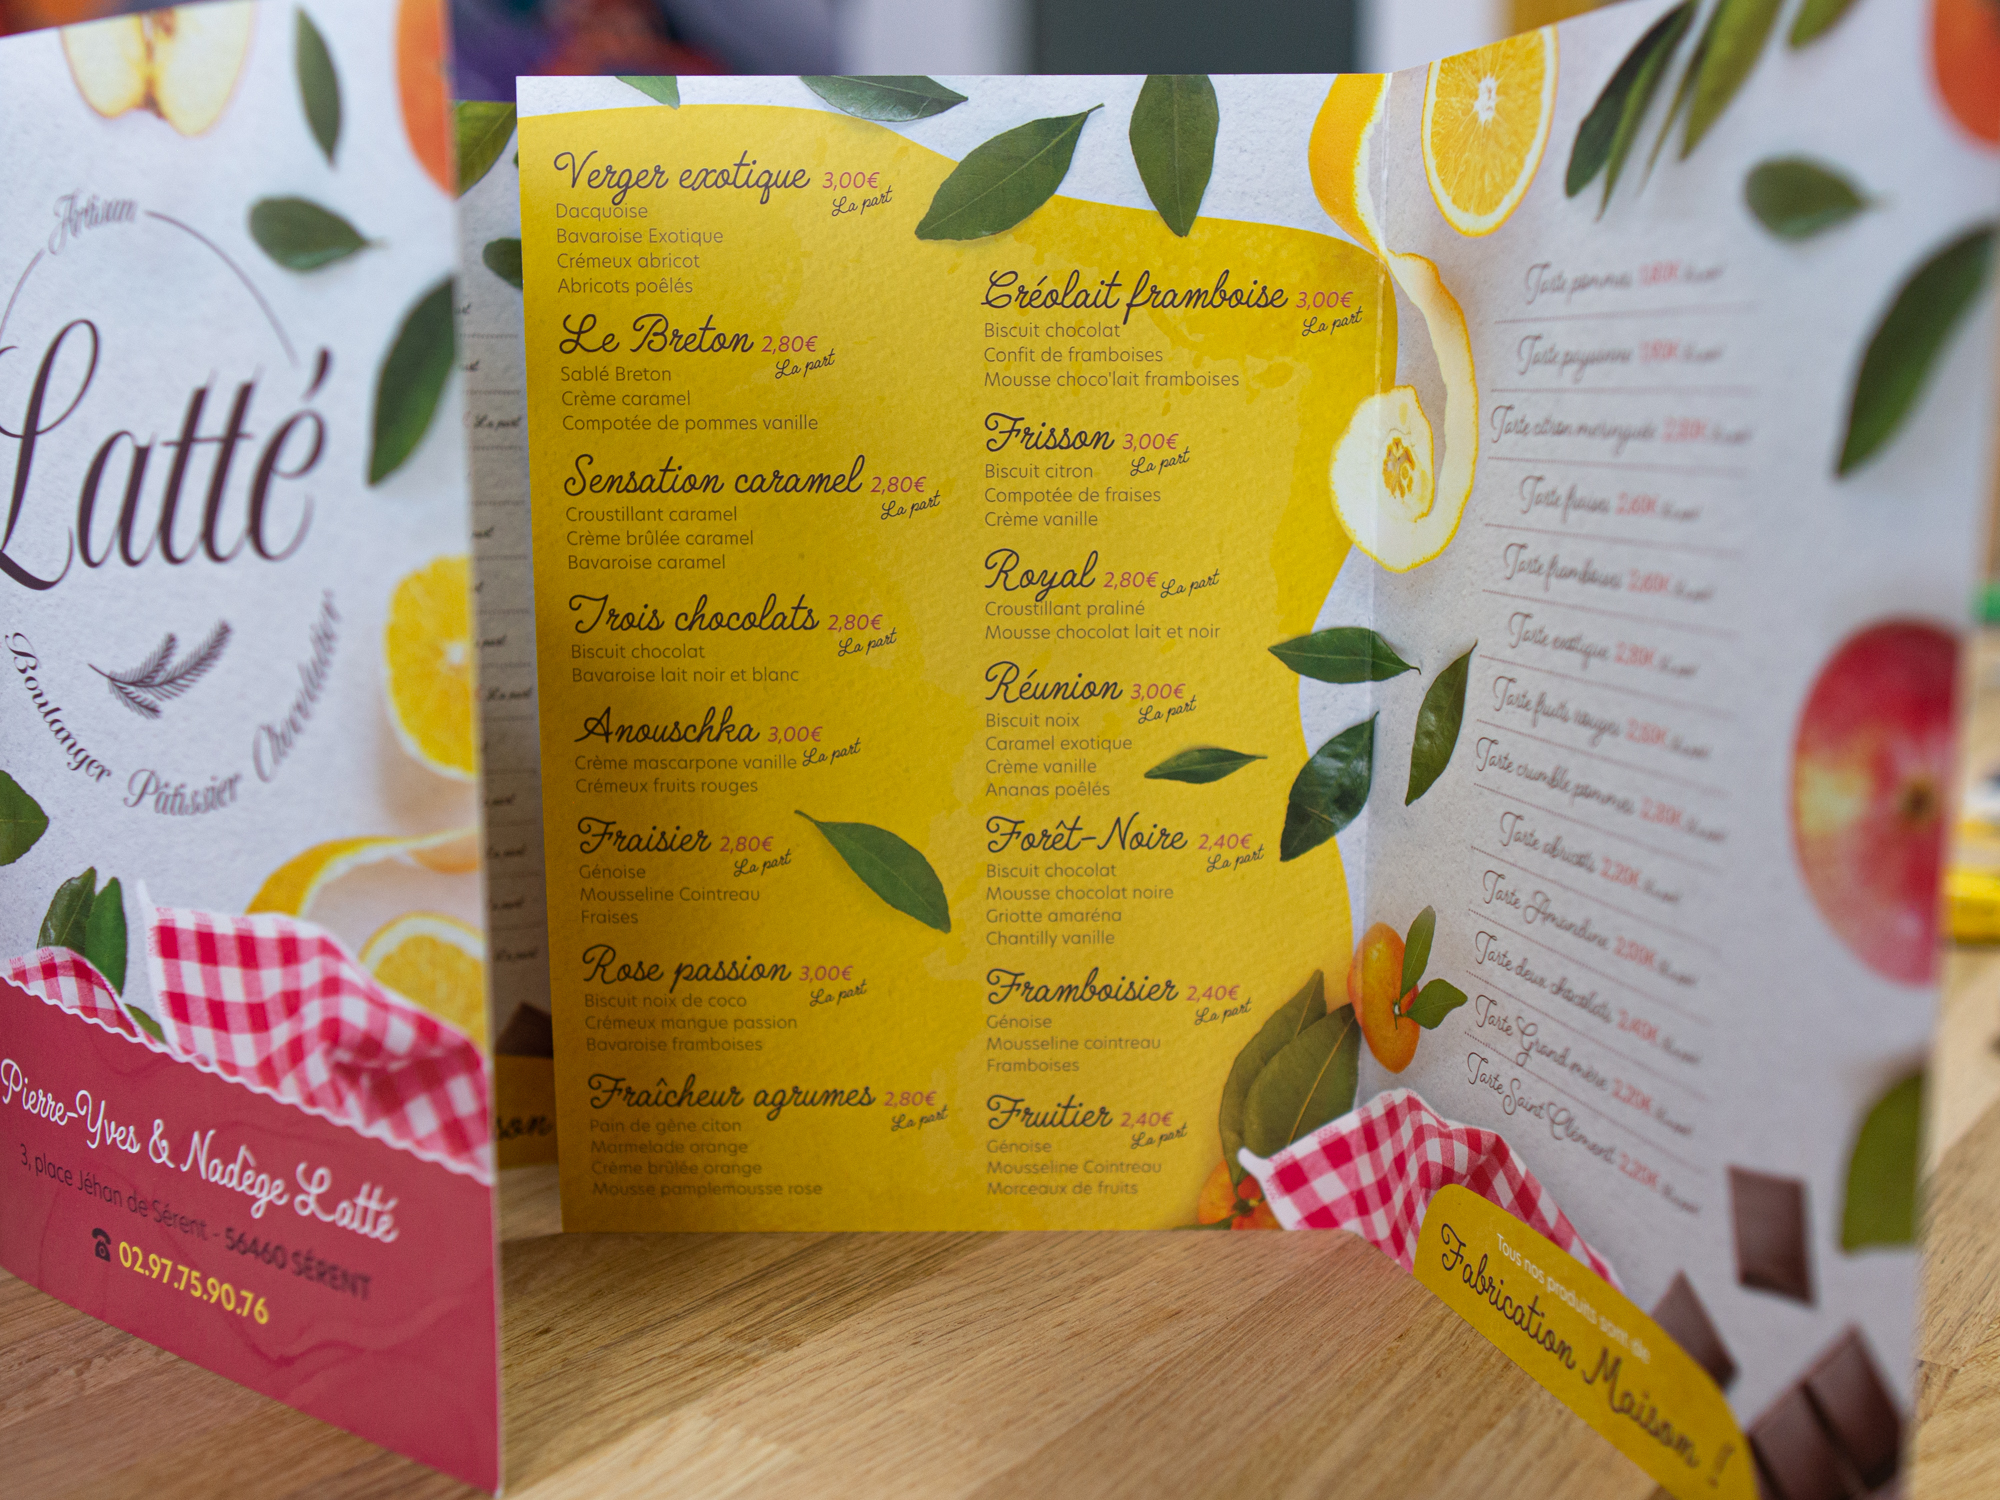 Artisan
Latté
Boulanger Pâtissier Chocolatier
Pierre-Yves & Nadège Latté
3, place Jéhan de Sérent - 56460 SÉRENT
02.97.75.90.76
Verger exotique 3,00€
La part
Dacquoise
Bavaroise Exotique
Crémeux abricot
Abricots poêlés
Le Breton 2,80€
La part
Sablé Breton
Crème caramel
Compotée de pommes vanille
Sensation caramel 2,80€
La part
Croustillant caramel
Crème brûlée caramel
Bavaroise caramel
Trois chocolats 2,80€
La part
Biscuit chocolat
Bavaroise lait noir et blanc
Anouschka 3,00€
La part
Crème mascarpone vanille
Crémeux fruits rouges
Fraisier 2,80€
La part
Génoise
Mousseline Cointreau
Fraises
Rose passion 3,00€
La part
Biscuit noix de coco
Crémeux mangue passion
Bavaroise framboises
Fraîcheur agrumes 2,80€
La part
Pain de gêne citon
Marmelade orange
Crème brûlée orange
Mousse pamplemausse rose
Créolait framboise 3,00€
La part
Biscuit chocolat
Confit de framboises
Mousse choco'lait framboises
Frisson 3,00€
La part
Biscuit citron
Compotée de fraises
Crème vanille
Royal 2,80€ La part
Croustillant praliné
Mousse chocolat lait et noir
Réunion 3,00€
La part
Biscuit noix
Caramel exotique
Crème vanille
Ananas poêlés
Forêt-Noire 2,40€
La part
Biscuit chocolat
Mousse chocolat noire
Griotte amaréna
Chantilly vanille
Framboisier 2,40€
La part
Génoise
Mousseline cointreau
Framboises
Fruitier 2,40€
La part
Génoise
Mousseline Cointreau
Morceaux de fruits
Tarte pommes
Tarte paysanne
Tarte citron meringuée
Tarte fraises 2,60€
Tarte framboises 2,60€
Tarte exotique
Tarte fruits rouges
Tarte crumble pommes
Tarte abricots 2,20€
Tarte Amandine
Tarte deux chocolats
Tarte Grand mère 2,20€
Tarte Saint Clément 2,20€
Tous nos produits sont de
Fabrication Maison !